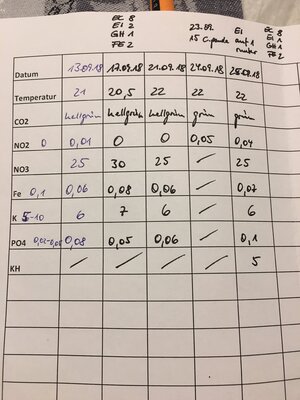 EC 8
Ei 2
GH 1
FE 2
23.09.
Ei auf 1
EC 8
Ei 1
GH 1
FE 2
Datum 13.09.18 17.09.18 21.09.18 24.09.18 28.09.18
Temperatur 21 20,5 22 22 22
CO2 hellgrün hellgrün hellgrün grün grün
NO2 0 0,01 0 0 0,05 0,04
NO3 25 30 25 / 25
Fe 0,1 0,06 0,08 0,06 / 0,07
K 5-10 6 7 6 / 6
PO4 0,02-0,08 0,08 0,05 0,06 / 0,1
KH / / / / 5